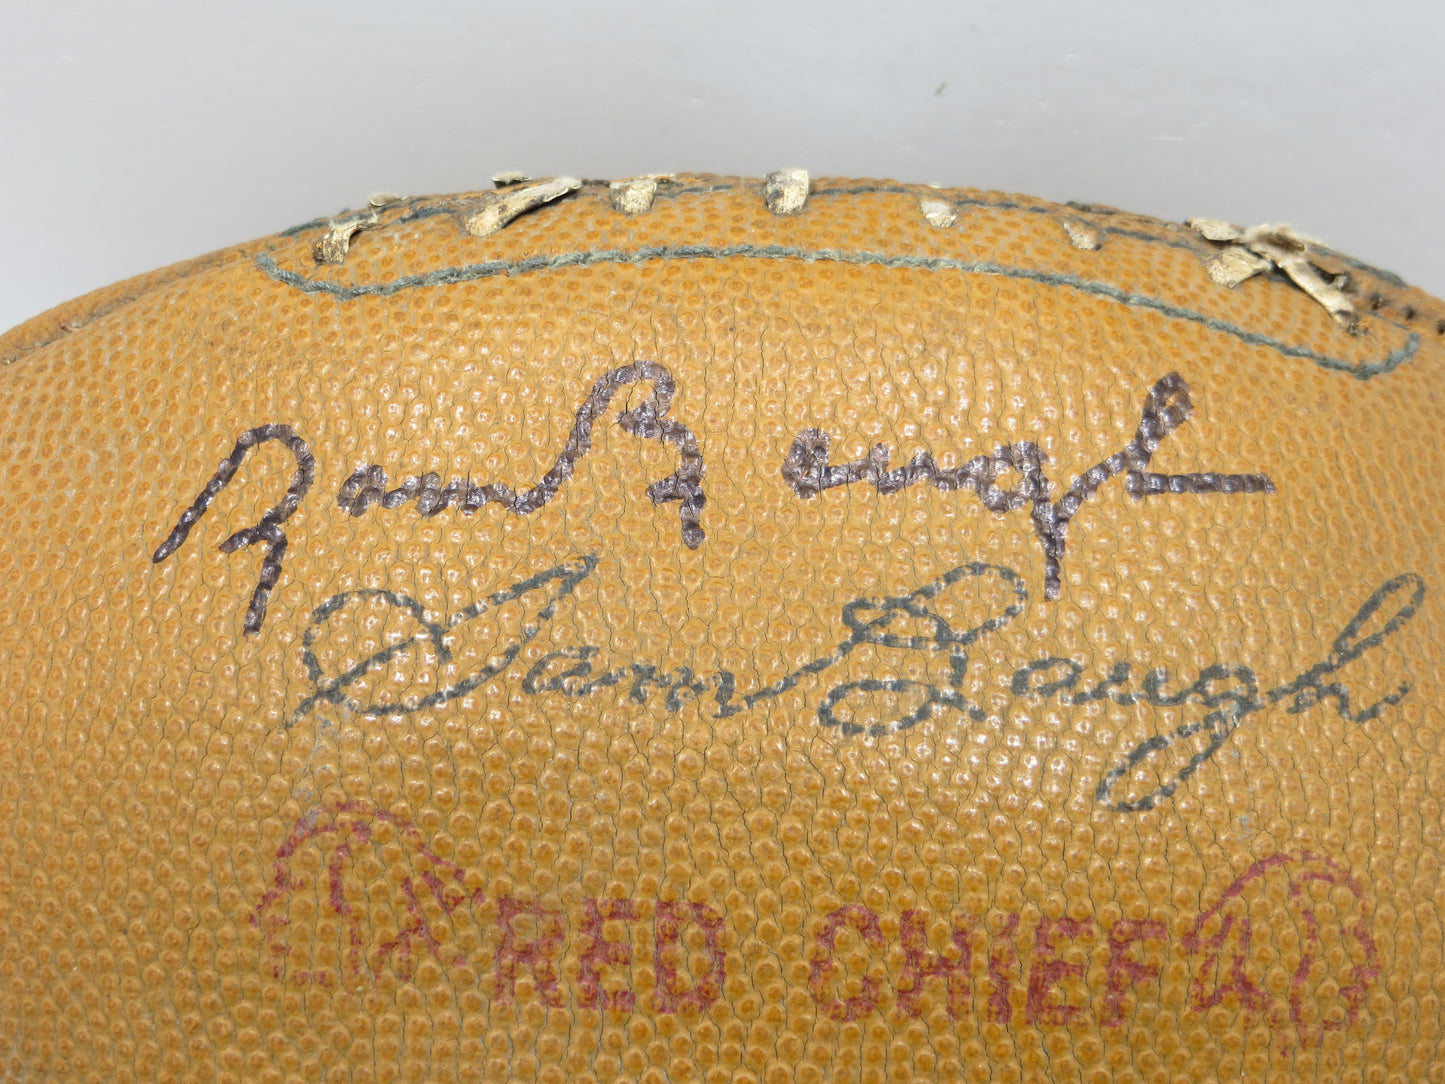 Sam Baugh
Sam Baugh
RED CHIEF